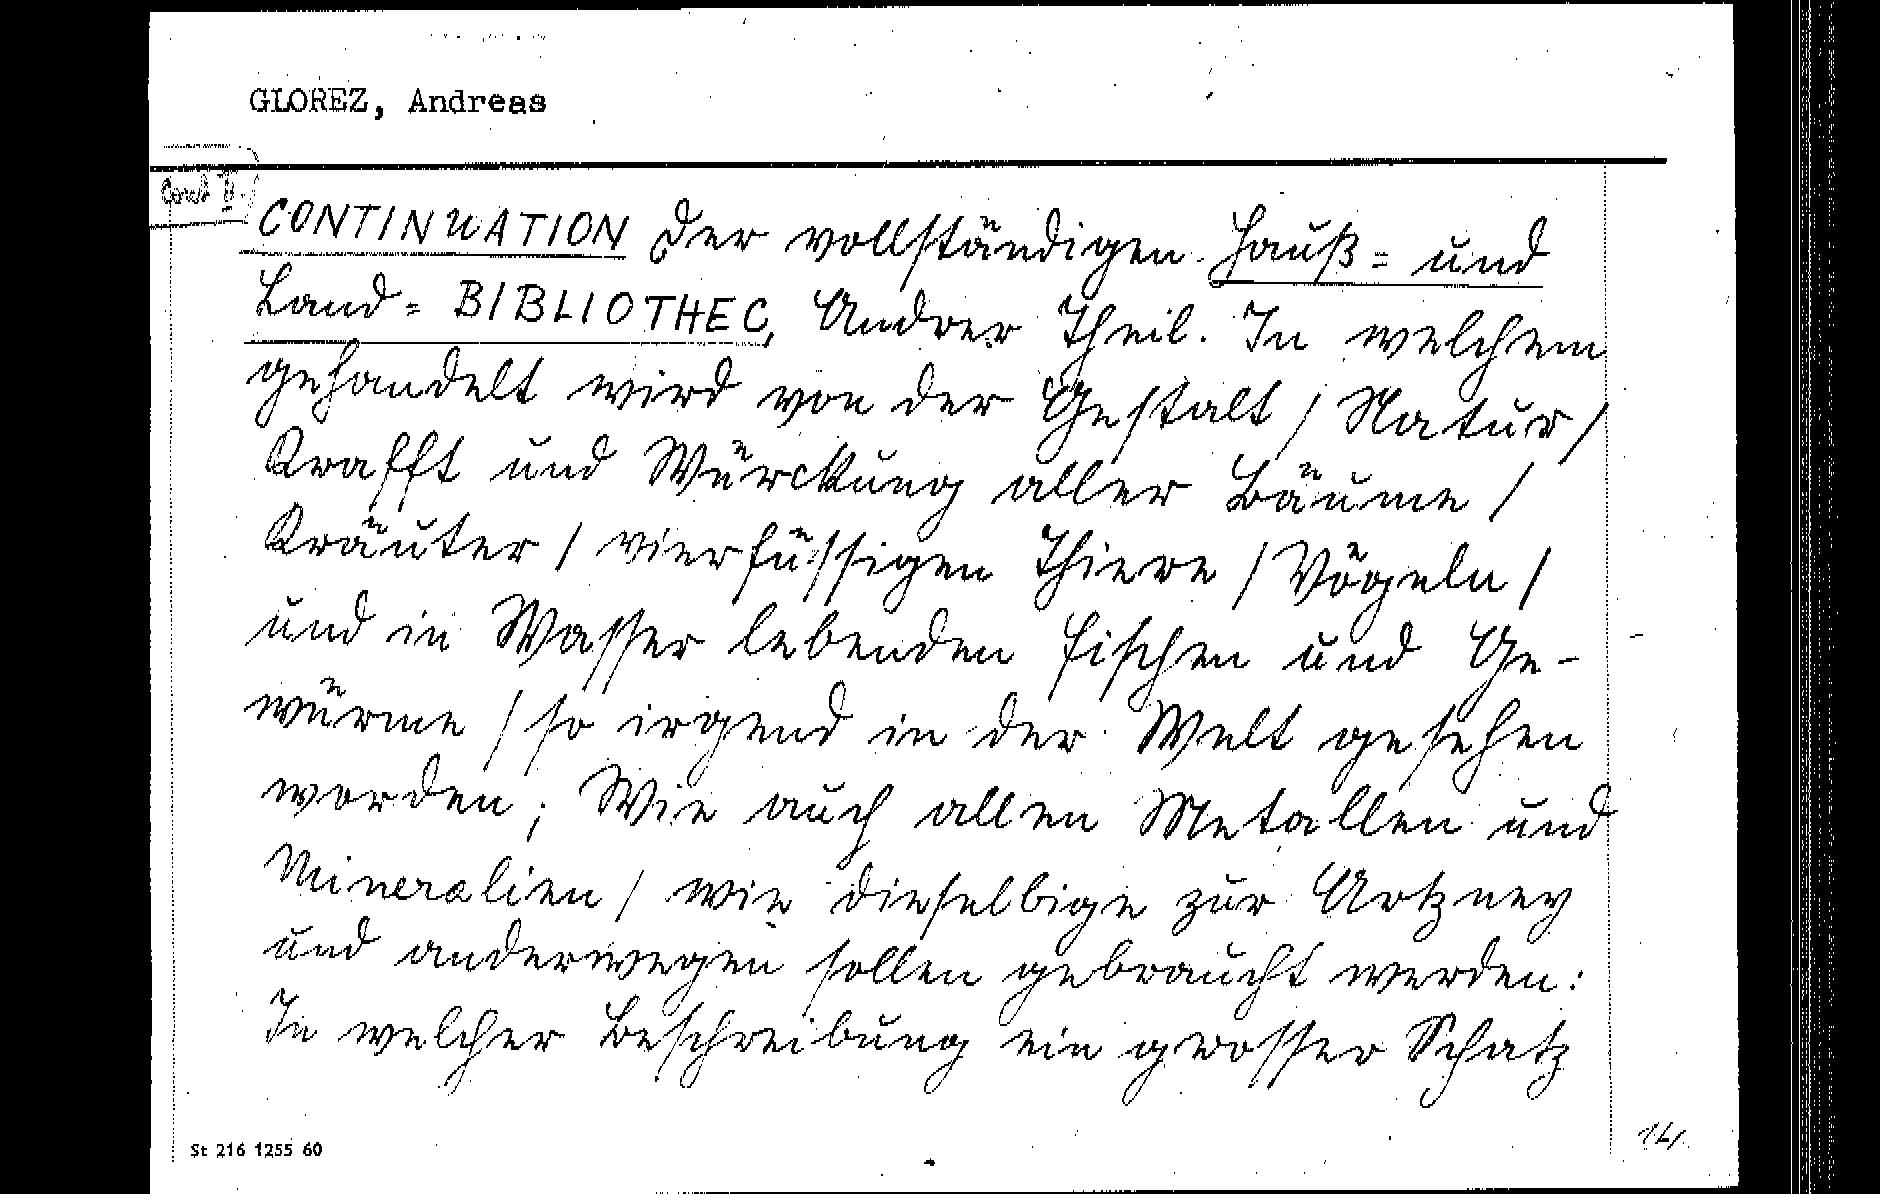 GLOREZ, Andreas
Cont II.
CONTINUATION der vollständigen Hauß= und
Land= BIBLIOTHEC, Andrer Theil. In welchem
gehandelt wird von der Gestalt / Natur /
Krafft und Würckung aller Bäume /
Kräuter / vierfüssigen Thiere / Vögeln /
und in Wasser lebenden Fischen und Ge-
würme / so irgend in der Welt gesehen
worden; Wie auch allen Metallen und
Mineralien / wie dieselbige zur Artzney
und anderwegen sollen gebraucht werden:
In welcher Beschreibung ein grosser Schatz
St 216 1255 60